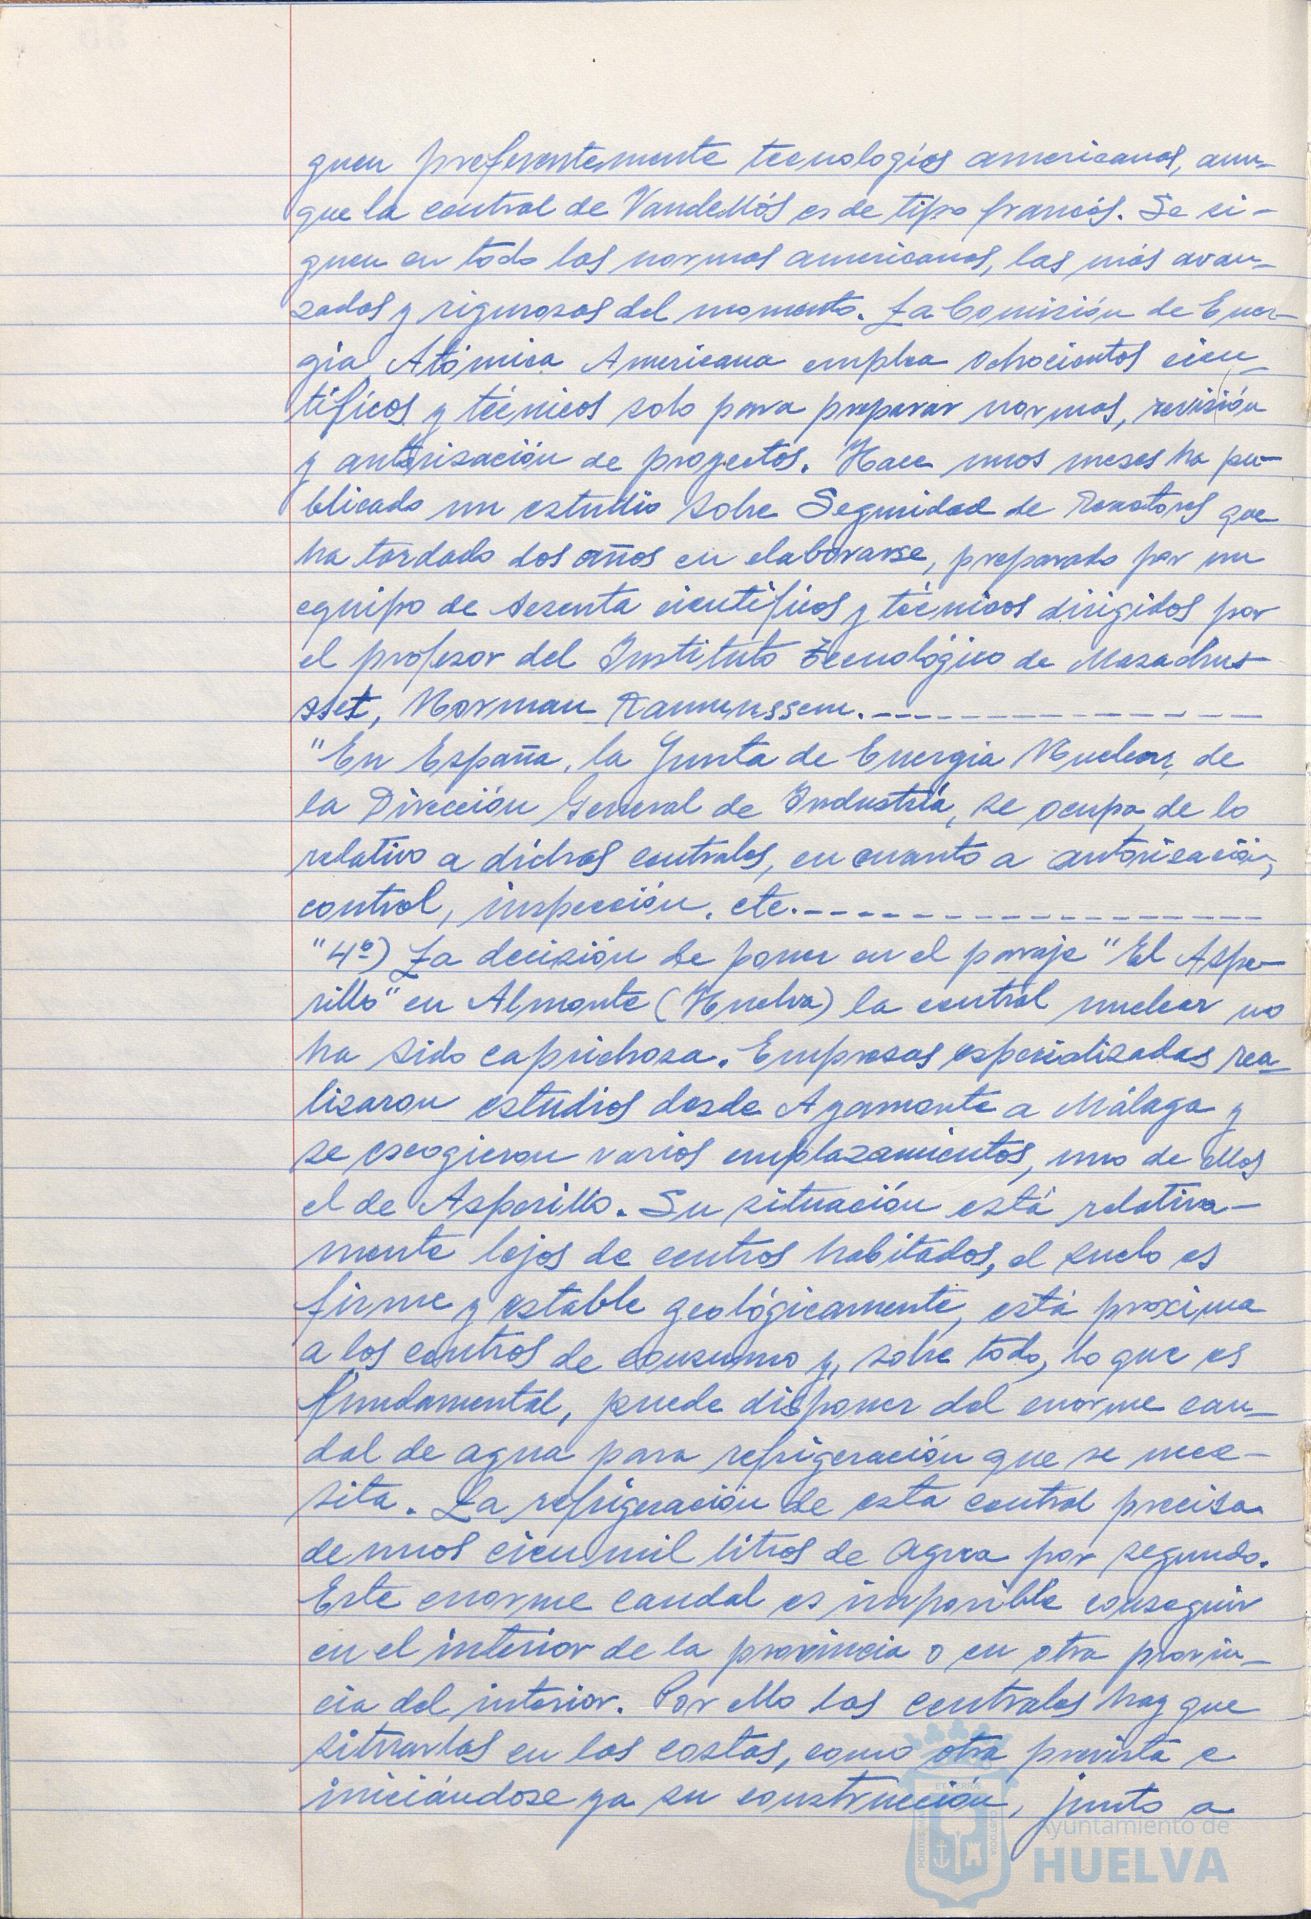 guen preferentemente tecnologías americanas, aun-
que la central de Vandellós es de tipo francés. Se si-
guen en todo las normas americanas, las más avan-
zadas y rigurosas del momento. La Comisión de Ener-
gía Atómica Americana emplea ochocientos cien-
tíficos y técnicos solo para preparar normas, revisión
y autorización de proyectos. Hace unos meses ha pu-
blicado un estudio sobre Seguridad de Reactores que
ha tardado dos años en elaborarse, preparado por un
equipo de sesenta científicos y técnicos dirigidos por
el profesor del Instituto Tecnológico de Masachus-
sset, Norman Ramunssem.
"En España, la Junta de Energía Nuclear, de
la Dirección General de Industria, se ocupa de lo
relativo a dichas centrales, en cuanto a autorización,
control, inspección, etc.
"4º) La decisión de poner en el paraje "El Aspe-
rillo" en Almonte (Huelva) la central nuclear no
ha sido caprichosa. Empresas especializadas rea-
lizaron estudios desde Ayamonte a Málaga y
se escogieron varios emplazamientos, uno de ellos
el de Asperillo. Su situación está relativa-
mente lejos de centros habitados, el suelo es
firme y estable geológicamente, está próxima
a los centros de consumo y, sobre todo, lo que es
fundamental, puede disponer del enorme cau-
dal de agua para refrigeración que se nece-
sita. La refrigeración de esta central precisa
de unos cien mil litros de agua por segundo.
Este enorme caudal es imposible conseguir
en el interior de la provincia o en otra provin-
cia del interior. Por ello las centrales hay que
situarlas en las costas, como otra prevista e
iniciándose ya su construcción, junto a
Ayuntamiento de
HUELVA